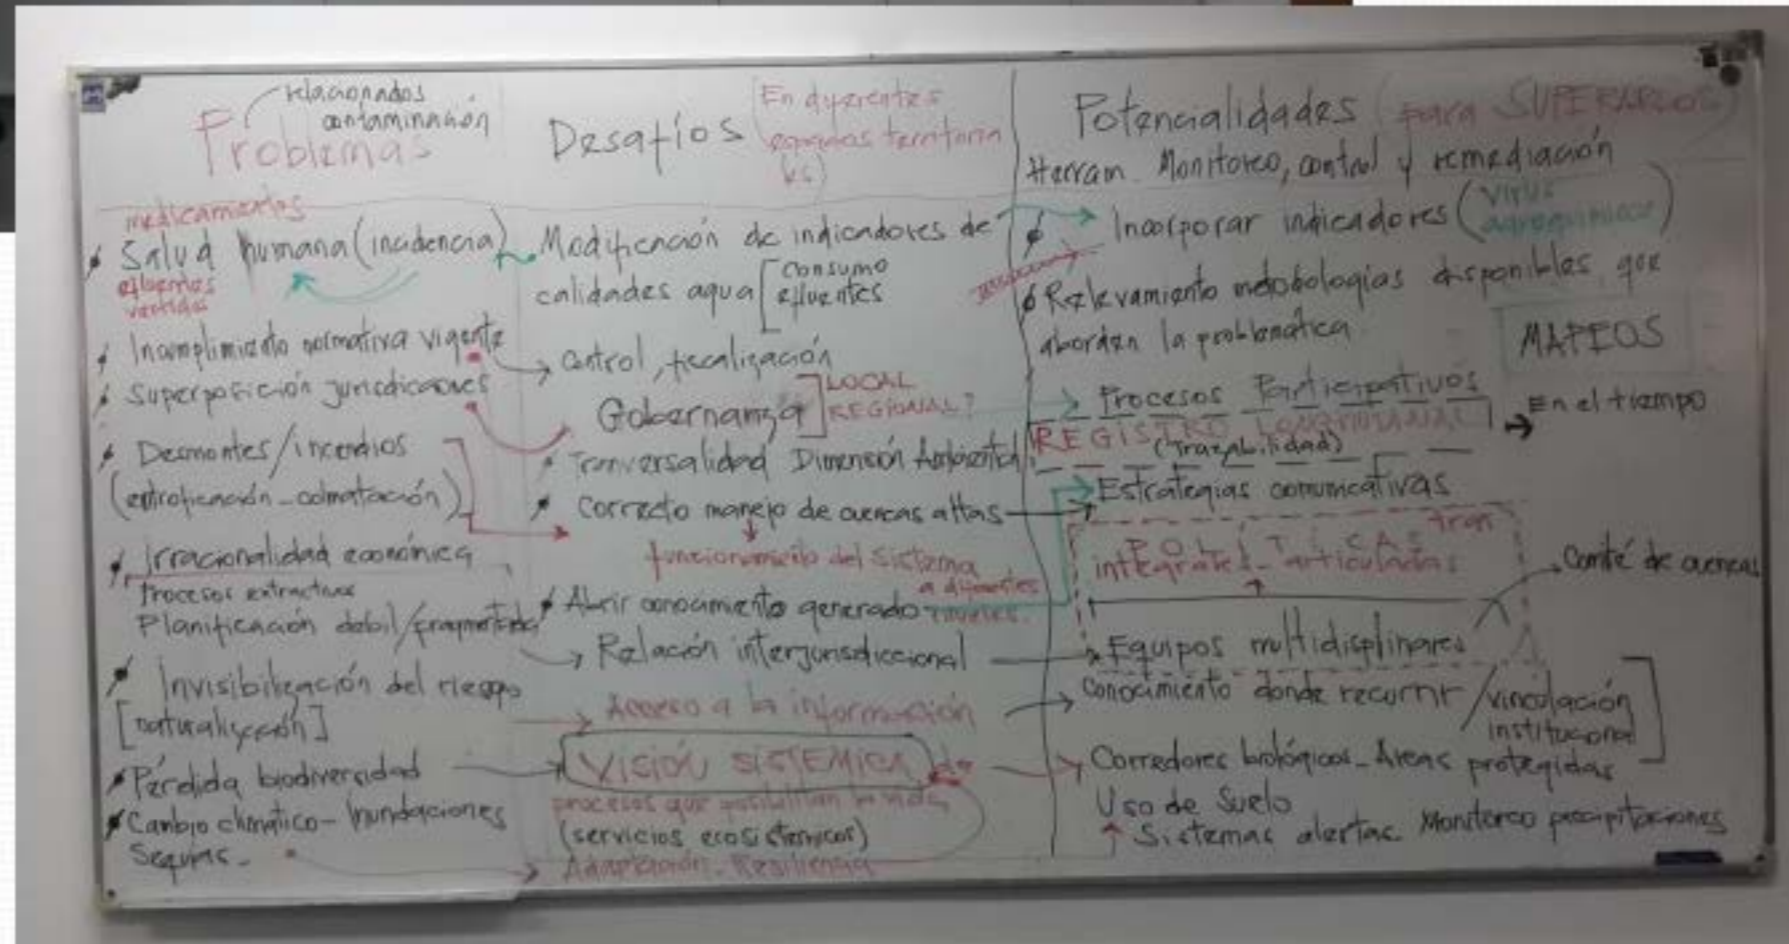 relacionados
contaminación
Problemas
medicamentos
Salud humana (incidencia)
efluentes
vertidos
Incumplimiento normativa vigente
Superposición jurisdicciones
Desmontes/incendios
(eutroficación - colmatación)
Irracionalidad económica
Procesos extractivos
Planificación débil/fragmentada
Invisibilización del riesgo
[naturalización]
Pérdida biodiversidad
Cambio climático - Inundaciones
Sequías -
Desafíos
En diferentes
espacios territoria
les)
Modificación de indicadores de
calidades agua [consumo
efluentes
Control, fiscalización
Gobernanza] LOCAL
REGIONAL?
Tranversalidad Dimensión Ambiental
Correcto manejo de cuencas altas
funcionamiento del sistema
a diferentes
Abrir conocimiento generado niveles.
Relación interjurisdiccional
Acceso a la información
VISIÓN SISTEMICA de
procesos que posibilitan la vida
(servicios ecosistémicos)
Adaptación - Resiliencia
Potencialidades (para SUPERARLOS)
Herram. Monitoreo, control y remediación
Incorporar indicadores (virus
agroquímicos)
Relevamiento metodologías disponibles que
aborden la problemática
MAPEOS
Procesos Participativos
REGISTRO LONGITUDINAL
(Trazabilidad)
En el tiempo
Estrategias comunicativas
POLITICAS
integrales - articuladas
Comité de cuencas
Equipos multidisplinares
Conocimiento donde recorrir / vinculación
institucional]
Corredores biológicos - Areas protegidas
Uso de Suelo
Sistemas alertas. Monitoreo precipitaciones